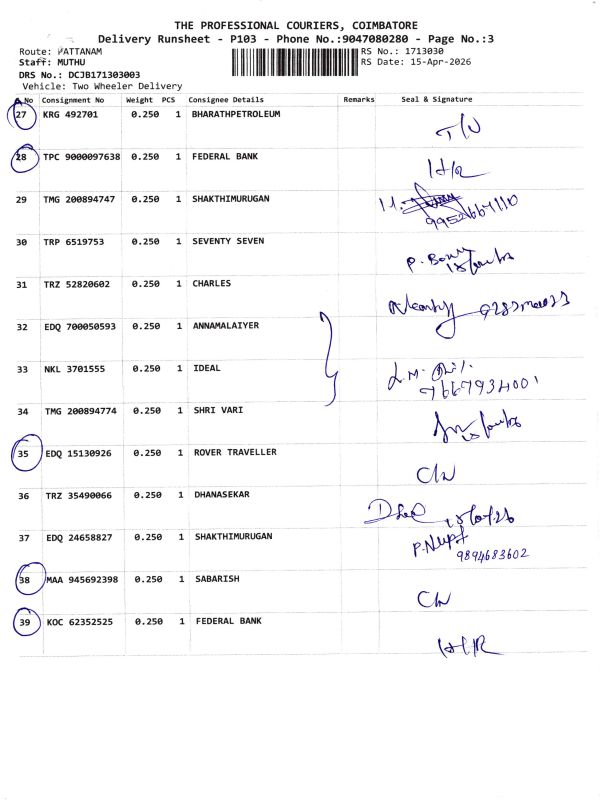 THE PROFESSIONAL COURIERS, COIMBATORE
Delivery Runsheet - P103 - Phone No.:9047080280 - Page No.:3
Route: VATTANAM
RS No.: 1713030
Staff: MUTHU
RS Date: 15-Apr-2026
DRS No.: DCJB171303003
Vehicle: Two Wheeler Delivery
S.No Consignment No Weight PCS Consignee Details Remarks Seal & Signature
27 KRG 492701 0.250 1 BHARATHPETROLEUM
28 TPC 9000097638 0.250 1 FEDERAL BANK
H/R
29 TMG 200894747 0.250 1 SHAKTHIMURUGAN
9952667110
30 TRP 6519753 0.250 1 SEVENTY SEVEN
31 TRZ 52820602 0.250 1 CHARLES
32 EDQ 700050593 0.250 1 ANNAMALAIYER
33 NKL 3701555 0.250 1 IDEAL
34 TMG 200894774 0.250 1 SHRI VARI
35 EDQ 15130926 0.250 1 ROVER TRAVELLER
36 TRZ 35490066 0.250 1 DHANASEKAR
37 EDQ 24658827 0.250 1 SHAKTHIMURUGAN
9894683602
38 MAA 945692398 0.250 1 SABARISH
39 KOC 62352525 0.250 1 FEDERAL BANK
H/R